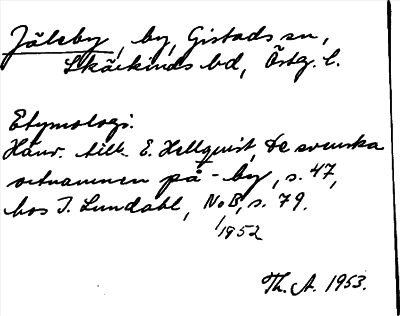 Jälsby, by, Gistads sn,
Skärkinds hd, Östg. l.
Etymologi.
Hänv. till E. Hellquist, De svenska
ortnamnen på -by, s. 47,
hos I. Lundahl, NoB, s. 79.
1952
Th. A. 1953.